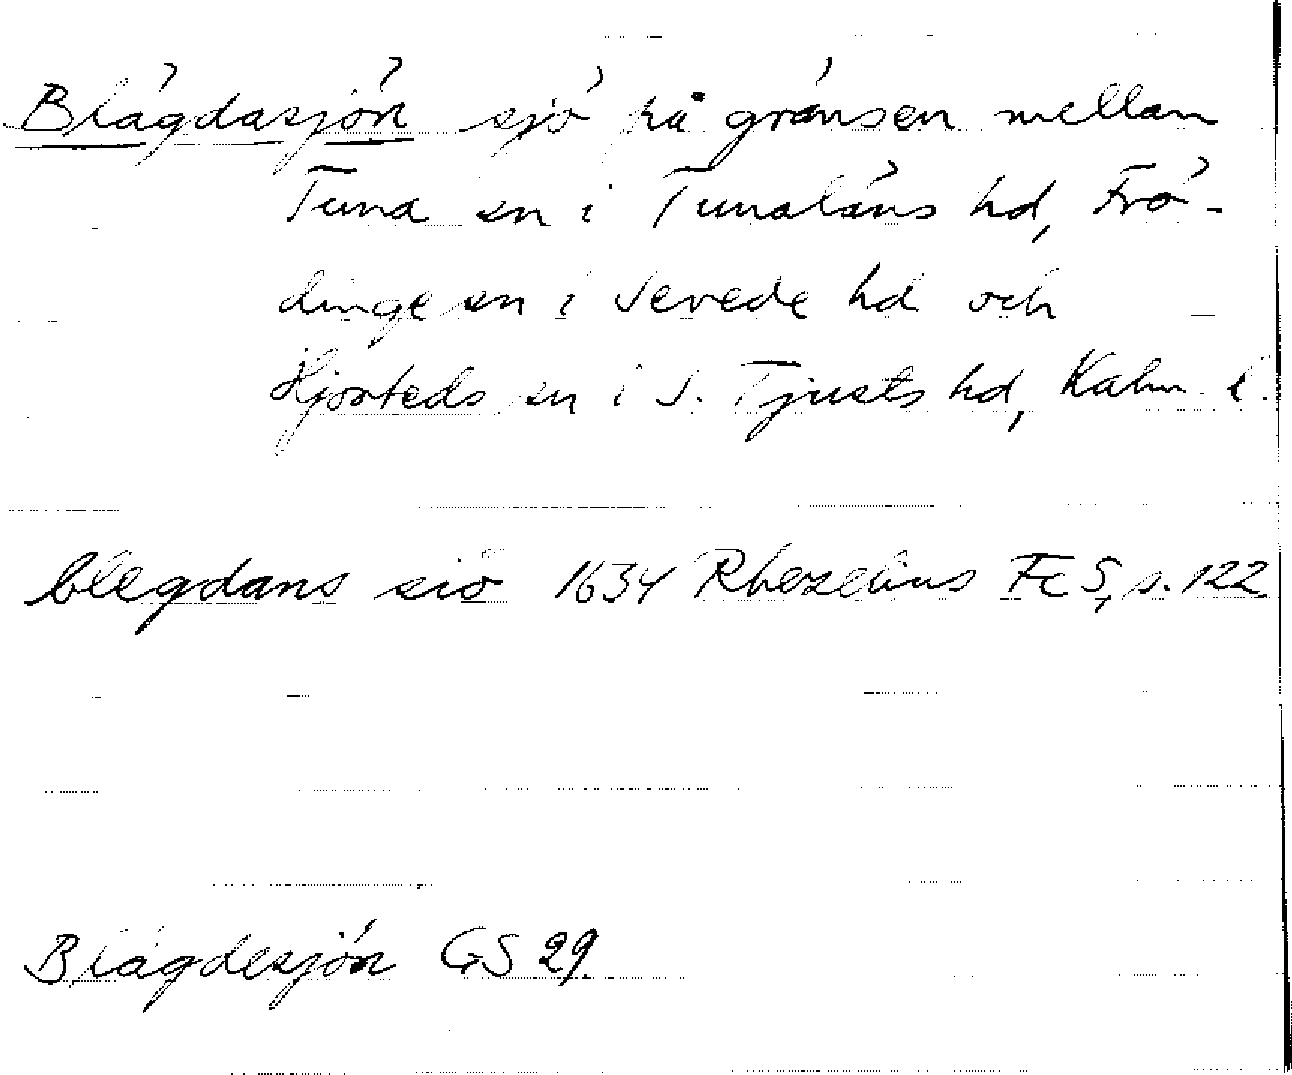 Blägdasjön sjö på gränsen mellan
Tuna sn i Tunaläns hd, Frö-
dinge sn i Sevede hd och
Hjorteds sn i S. Tjusts hd, Kalm. l.
blegdans siö 1634 Rhezelius Fc 5, s. 122
Blägdesjön GS 29.